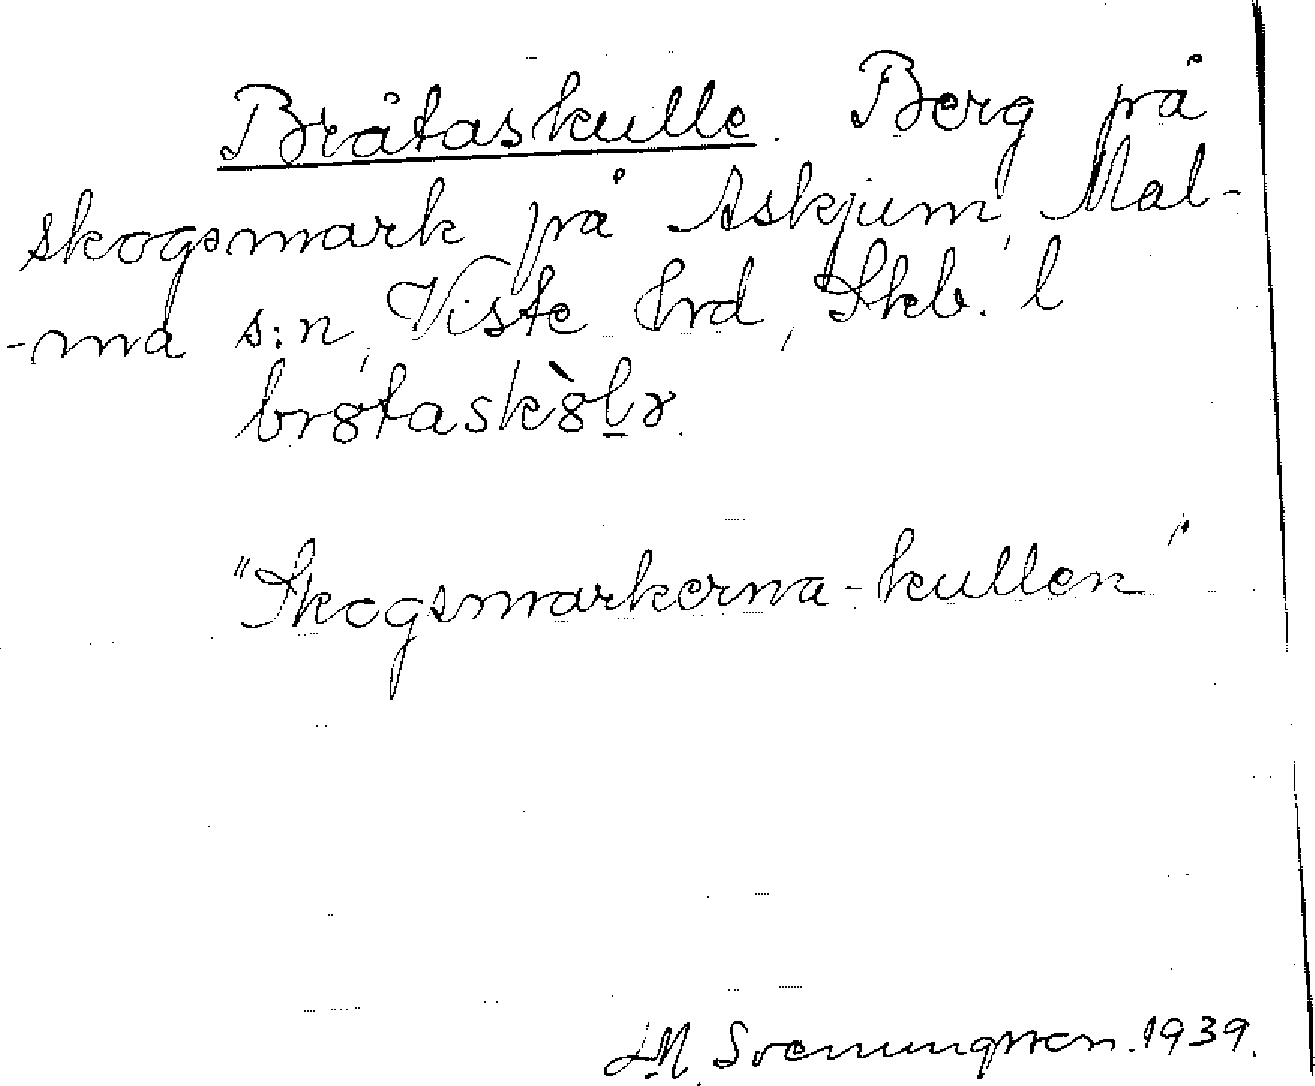 Bråtaskulle. Berg på
skogsmark på Askjum, Mal-
-ma s:n, Viste hrd, Skb. l
br8taskè8l̲ɤ.
"Skogsmarkerna-kullen"
M. Svenungsson. 1939.